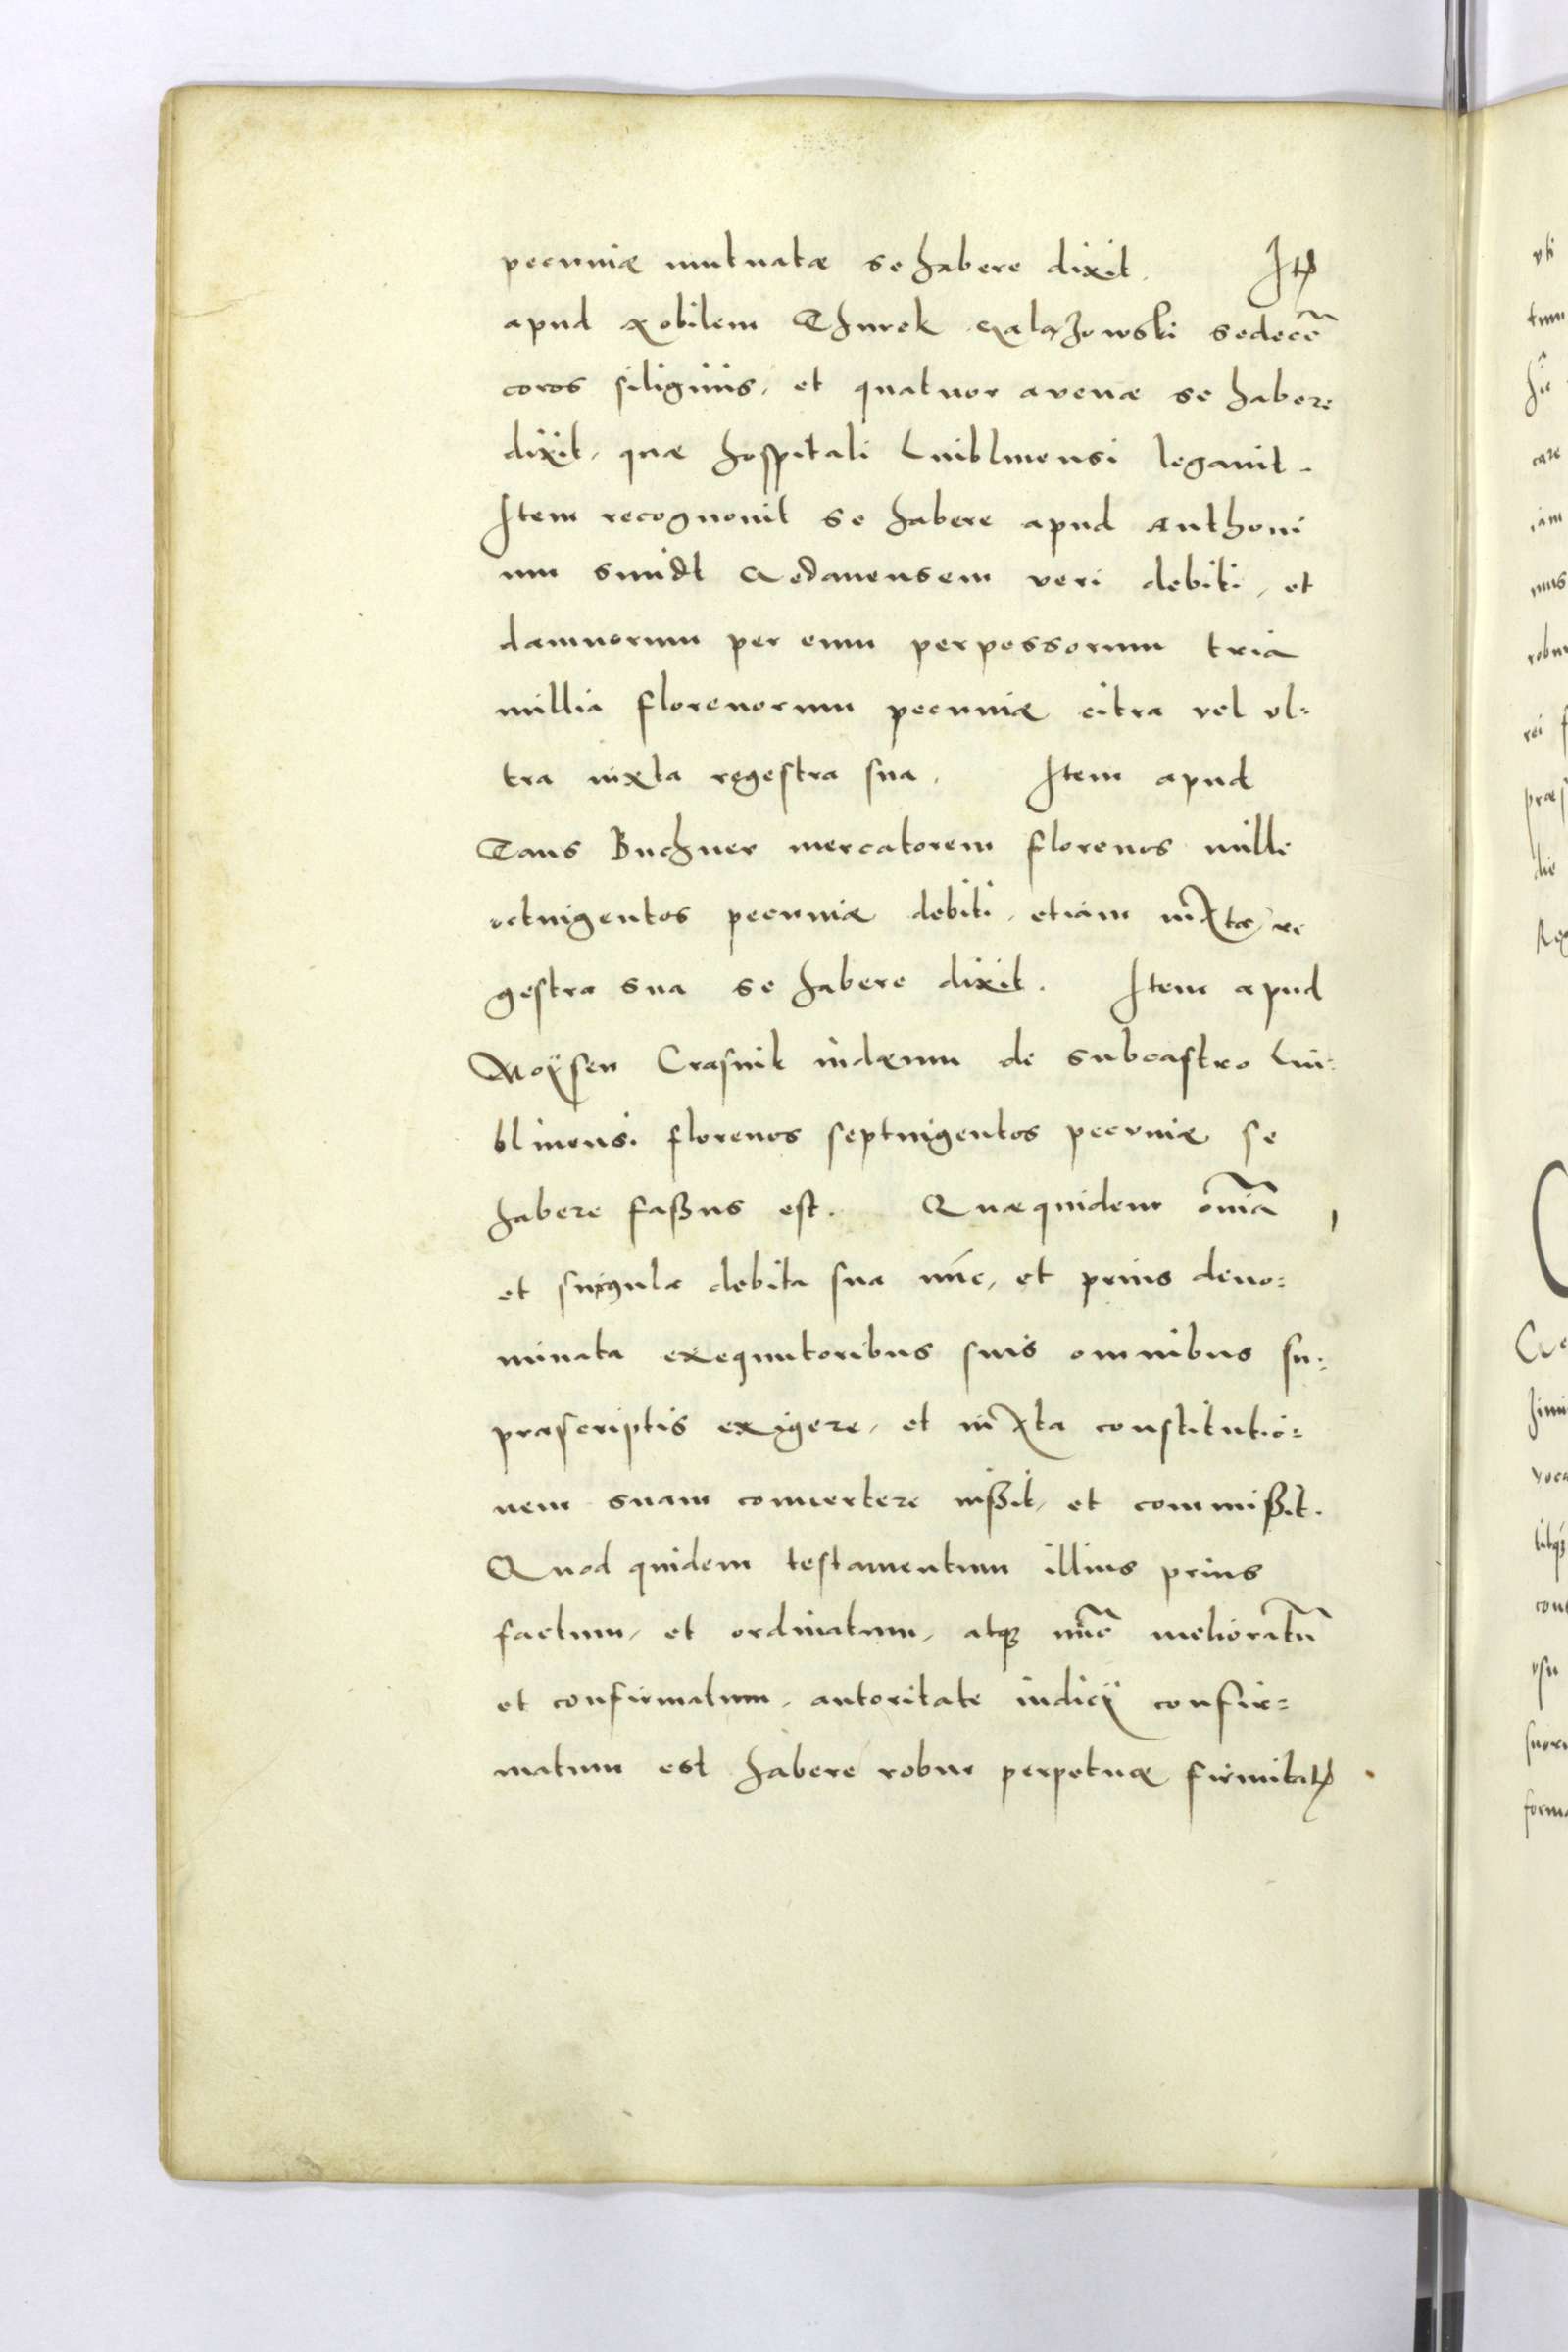 pecuniæ mutuatæ se habere dixit. Itē
apud Nobilem Thurek sedecē
coros siliginis, et quatuor avenæ se habere
dixit, quæ hospitali Luiblinensi legauit.
Item recognouit se habere apud Anthoni
um Smidt Gedanensem veri debiti, et
damnorum per eum perpessorum tria
millia florenorum pecuniæ citra vel vl=
tra iuxta regestra sua. Item apud
Hans Buchner mercatorem florenos mille
octuigentos pecuniæ debiti, etiam iuxta re
gestra sua se habere dixit. Item apud
Moÿsen Crasnik iudæum de subcastro Lui=
blinensi florenos septuigentos pecuniæ se
habere faßus est. Quæquidem oĩa
et singula debita sua nūc, et prius deno=
minata exequutoribus suis omnibus su=
præscriptis exigere, et iuxta constitutio=
nem suam conuertere iußit, et commißit.
Quod quidem testamentum illius prius
factum, et ordinatum, atqȝ nūc melioratū
et confirmatum, autoritate iudicÿ confir=
matum est habere robur perpetuæ firmitatis